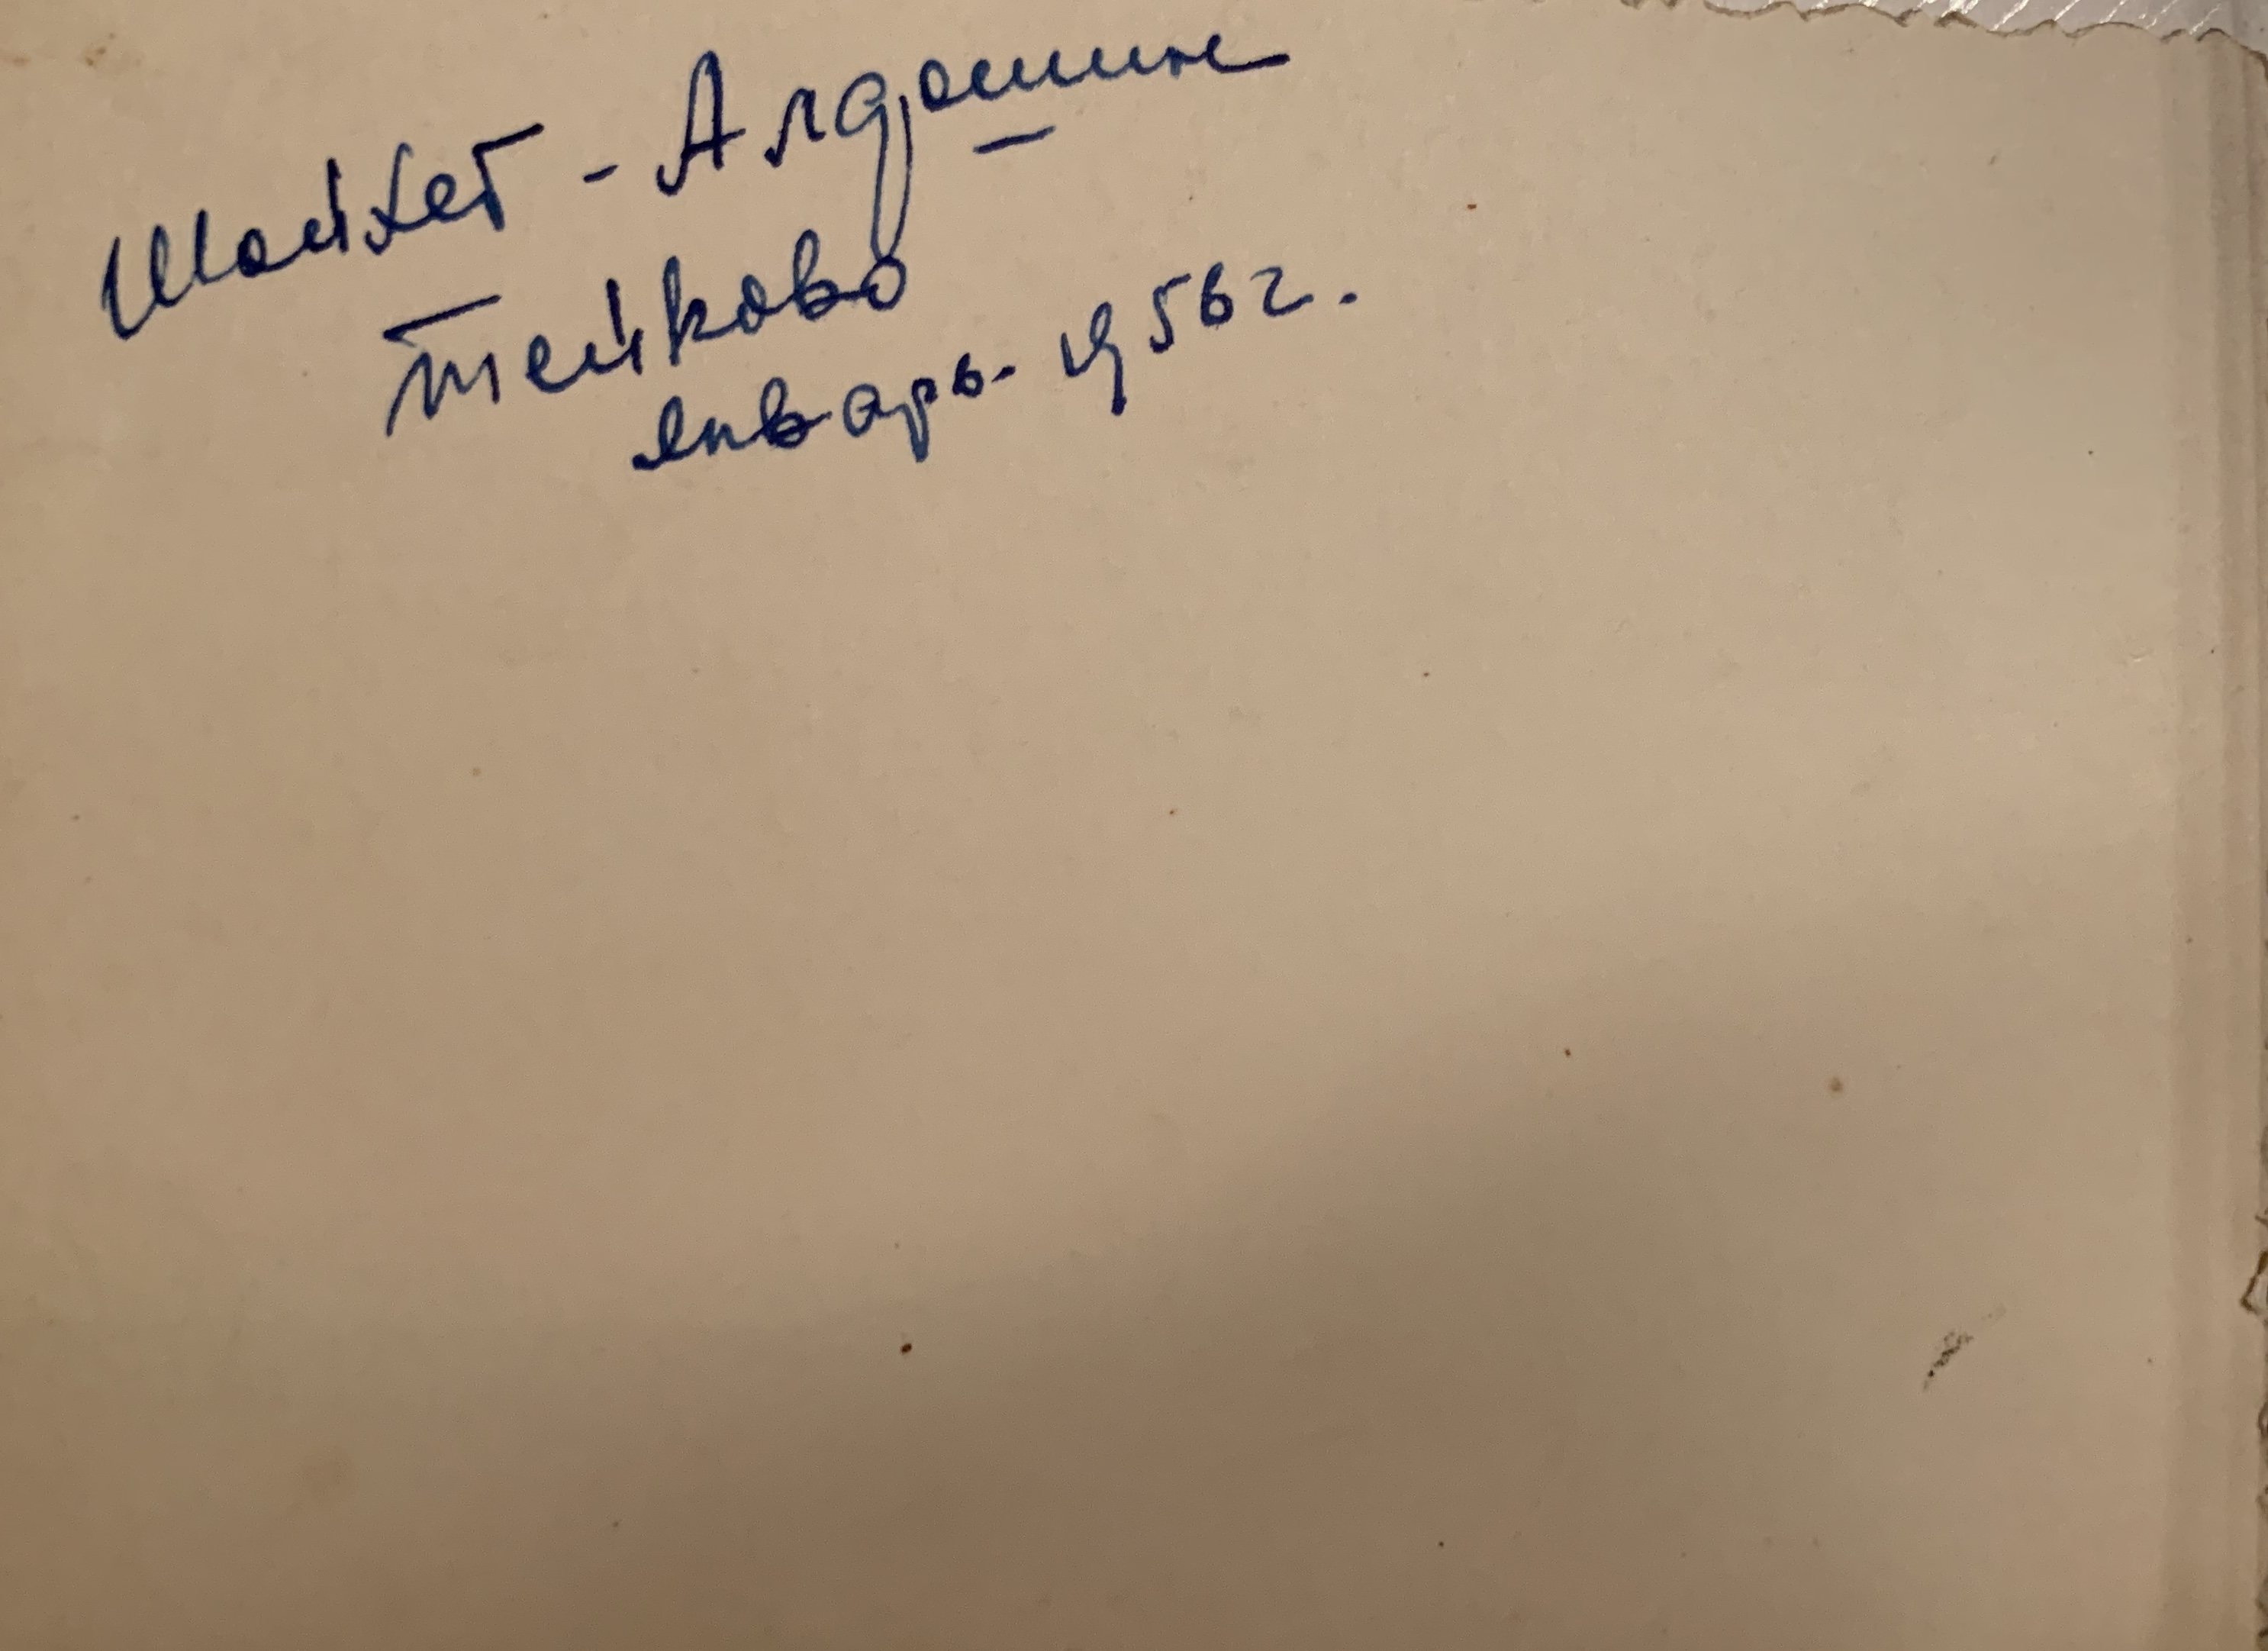 Шойхет - Алдошин
Тейково
январь. 1956 г.